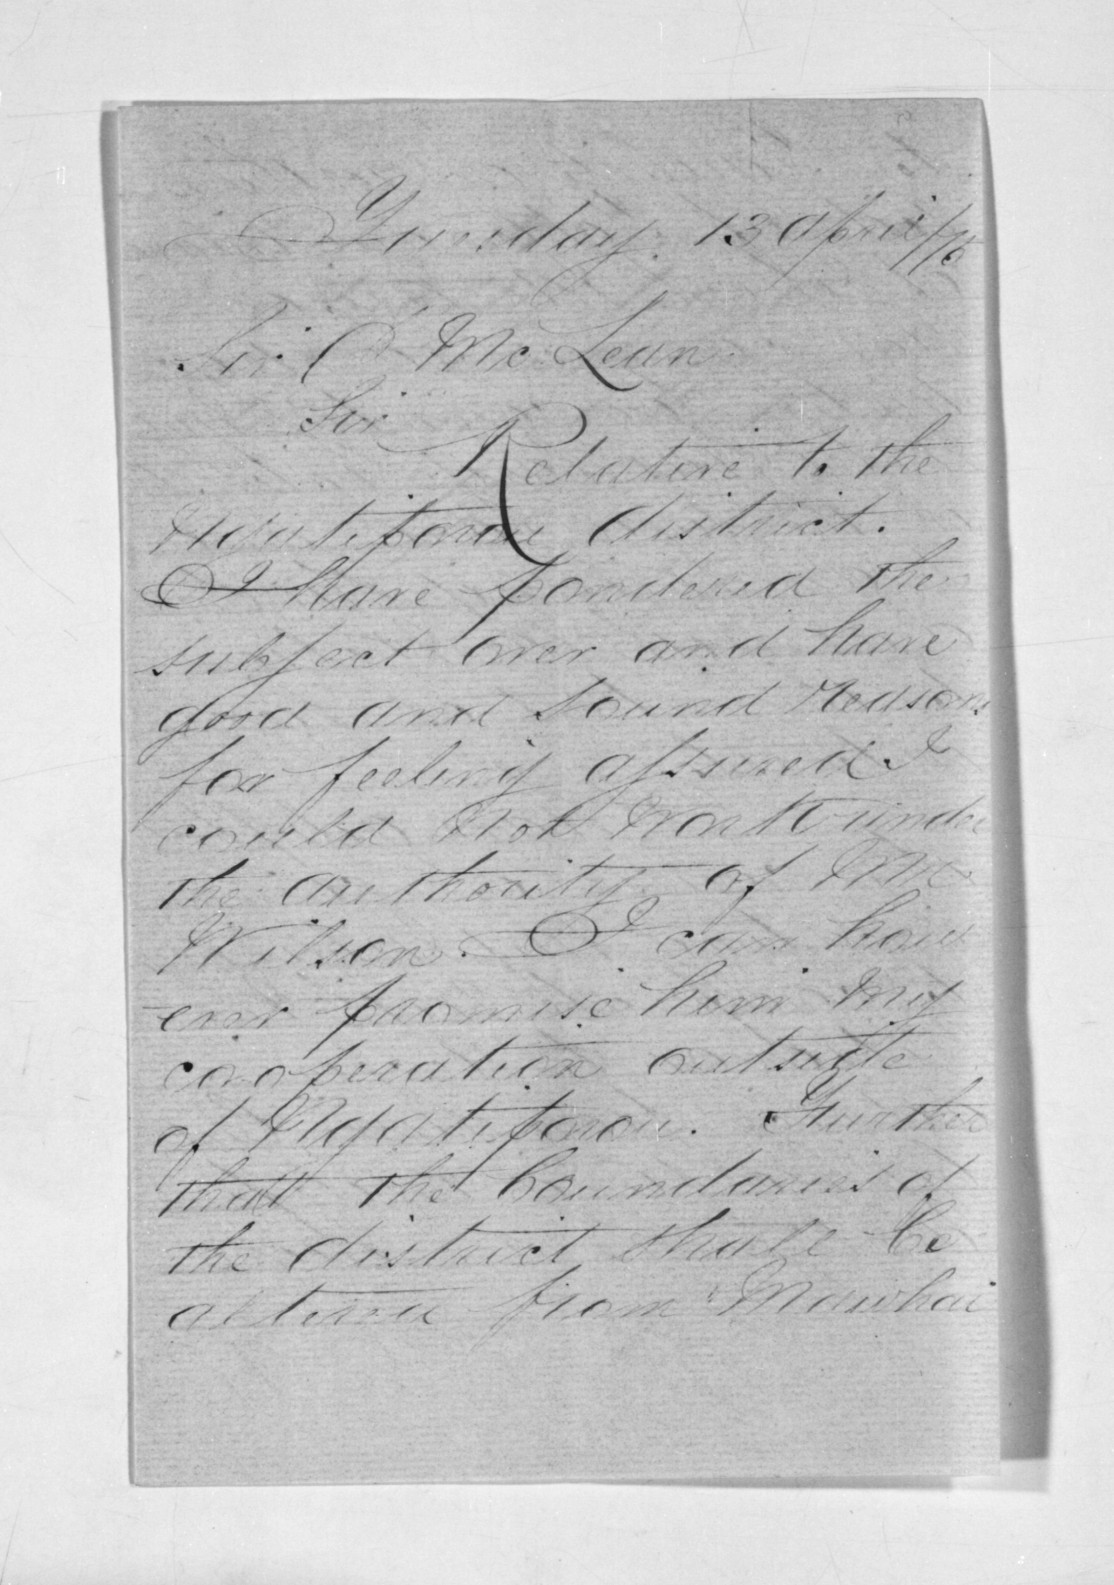 Tuesday 13 April/75
Sir D McLean
Sir
Relative to the
Ngatiporou district.
I have pondered the
subject over and have
good and sound reasons
for feeling assured I
could not work under
the authority of Mr
Wilson. I can how
ever promise him my
cooperation outside
of Ngatiporou. Further
that the boundaries of
the district shall be
altered from "Mawhai